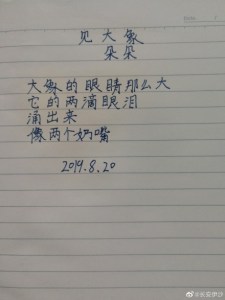 见大象
朵朵
大象的眼睛那么大
它的两滴眼泪
涌出来
像两个奶嘴
2019.8.20
@长安伊沙